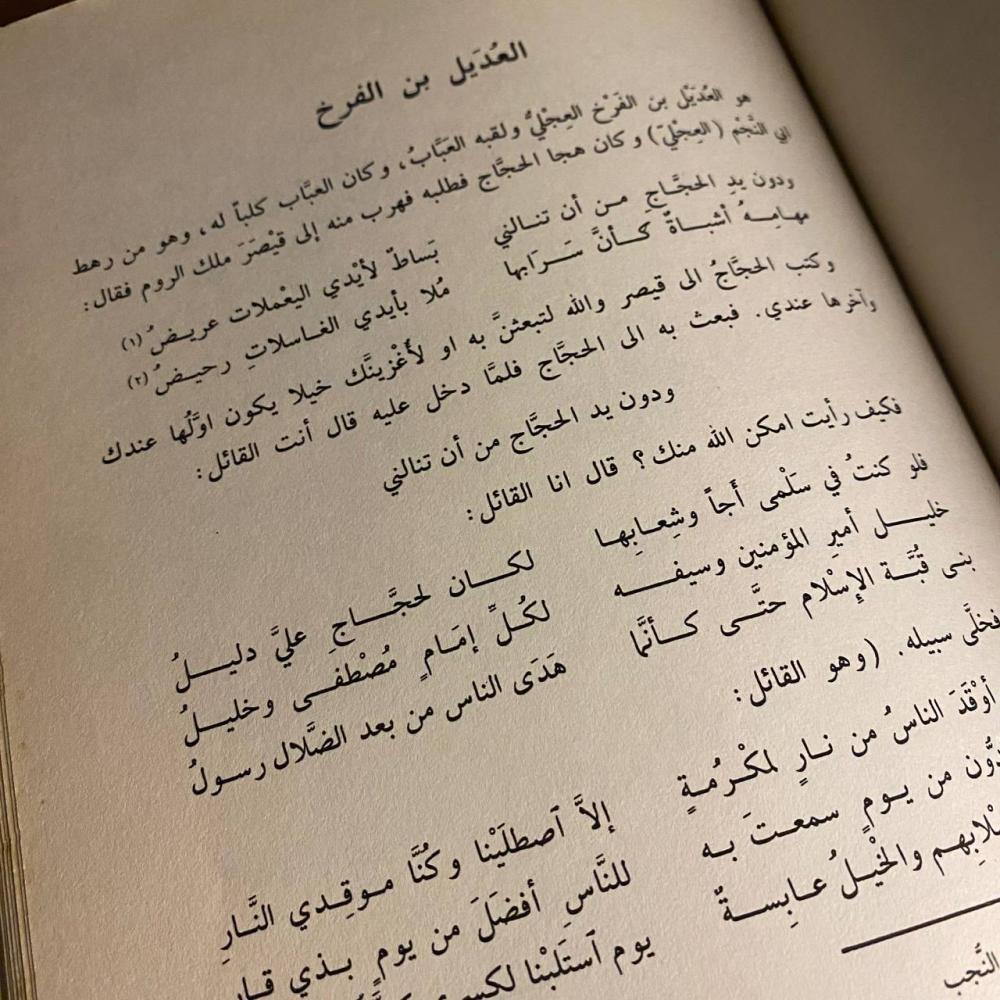 العُدَيل بن الفرخ
هو العُدَيْل بن الفَرْخ العِجْليُّ ولقبه العَبَّابُ، وكان العبَّاب كلباً له، وهو من رهط
ابي النَّجْم (العِجْليّ) وكان هجا الحجَّاج فطلبه فهرب منه إلى قيْصَرَ ملك الروم فقال:
ودون يدِ الحجَّاجِ من أن تنالني بَساطٌ لأيْدي اليعْملات عريضُ (١)
مهامِهُ أشباهٌ كأنَّ سَرَابها مُلا بأيدي الغاسلاتِ رحيضُ (٢)
وكتب الحجَّاجُ الى قيصر والله لتبعثنَّ به او لأُغْزينَّك خيلا يكون اوَّلُها عندك
وآخرها عندي. فبعث به الى الحجَّاج فلمَّا دخل عليه قال أنت القائل:
ودون يد الحجَّاج من أن تنالني
فكيف رأيت امكن الله منك؟ قال انا القائل:
فلو كنتُ في سَلْمى أجاً وشِعابِها لكان لحجَّاجِ عليَّ دليلُ
خليل أميرِ المؤمنين وسيفه لكُلِّ إمَامٍ مُصْطفى وخليلُ
بنى قُبَّة الإسْلام حتَّى كأنَّما هَدَى الناس من بعد الضَّلال رسولُ
فخلَّى سبيله. (وهو القائل:
أوْقَدَ الناسُ من نارٍ لمكْرُمةٍ إلاَّ ٱصطلَيْنا وكُنَّا موقِدي النَّارِ
من يومٍ سمعتَ به للنَّاسِ أفضَلَ من يومٍ بذي قارِ
والخيْلُ عابسةٌ يوم ٱستَلبْنا
النَّجب